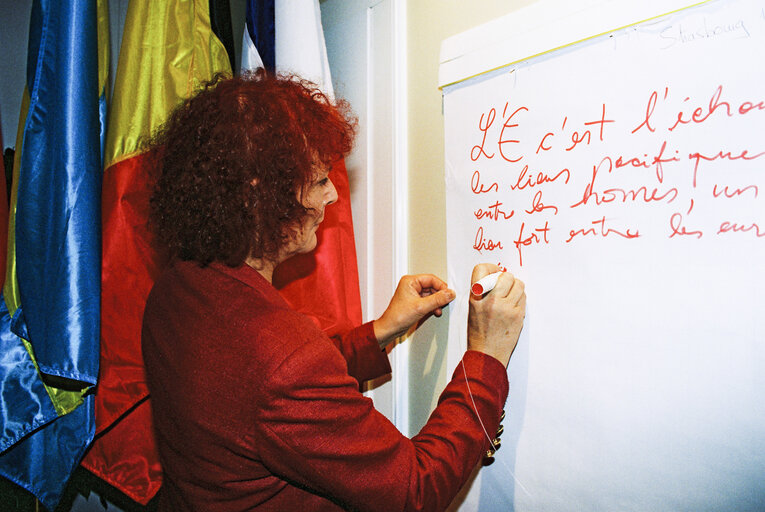 Strasbourg
L'E c'est l'écha
les liens pacifique
entre les hommes, un
lien fort entre les eur